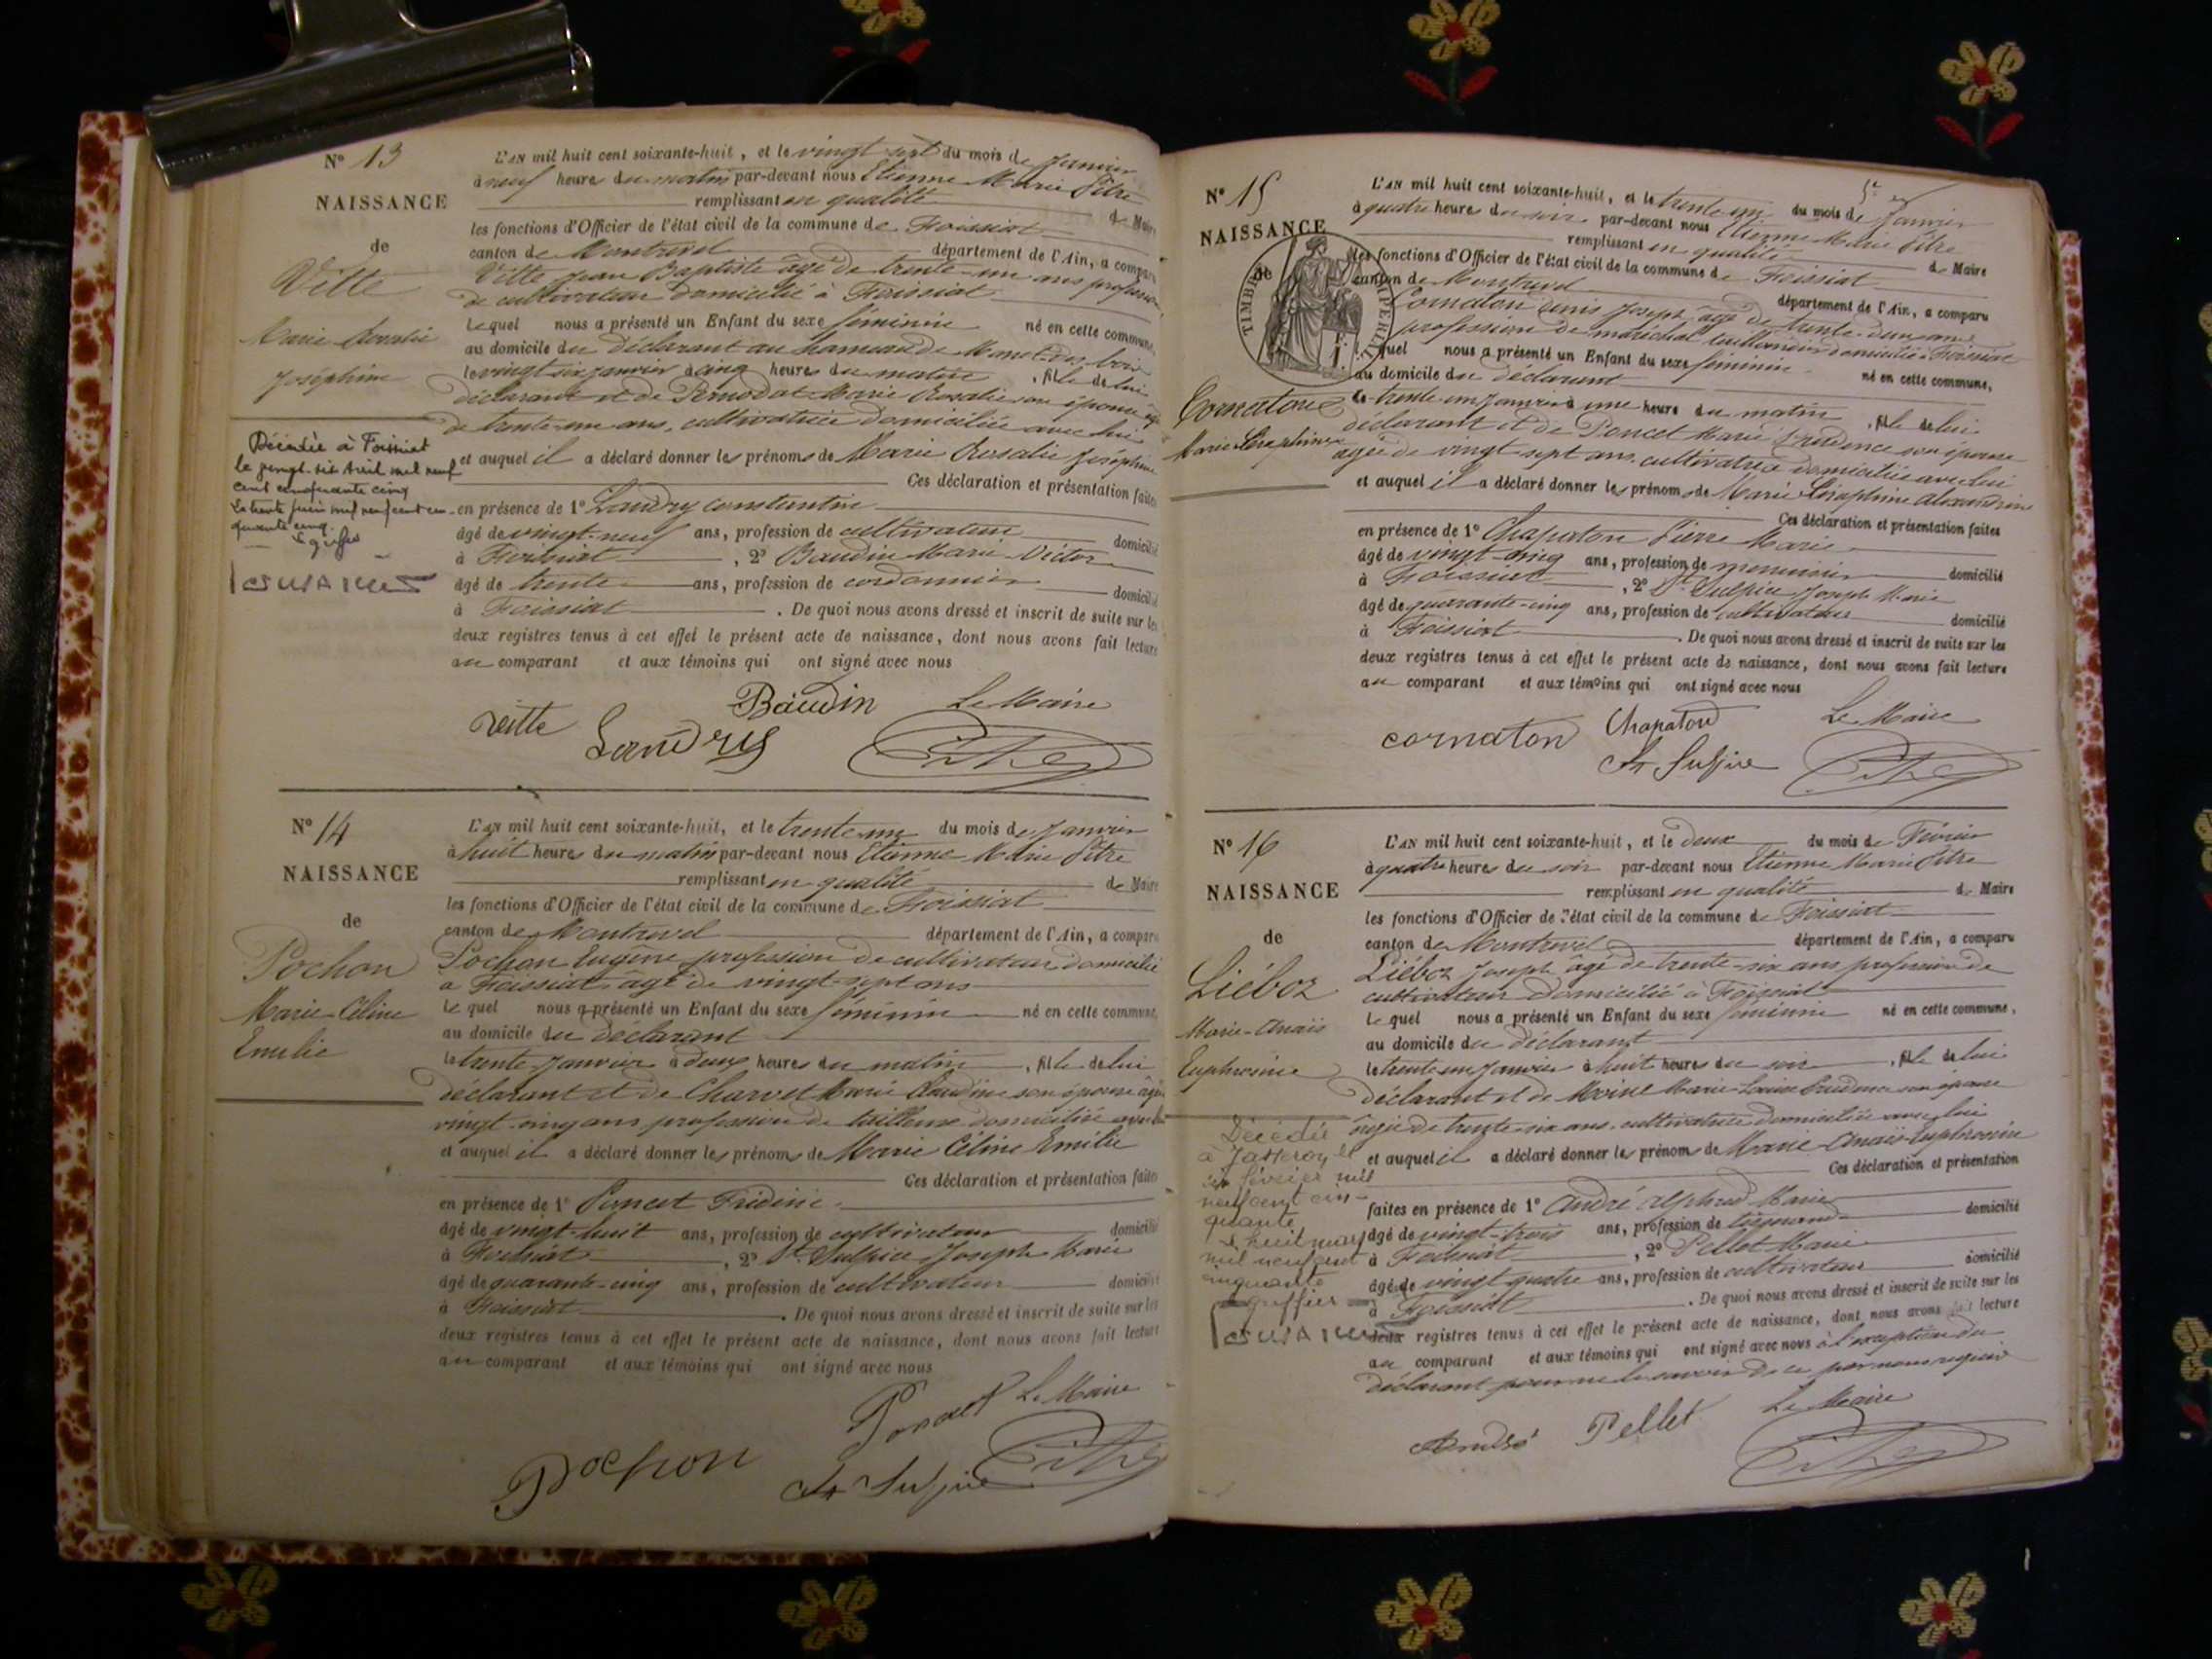 N° 13
NAISSANCE
de
Vitte
Marie Rosalie
Joséphine
Décédée à Foissiat
le vingt-six Avril mil neuf
cent cinquante cinq
Le trente juin mil neuf cent cin-
quante cinq.
L'AN mil huit cent soixante-huit, et le vingt sept du mois de Janvier
à neuf heures du matin par-devant nous Etienne Marie Pitre
remplissant en qualité de Maire
les fonctions d'Officier de l'état civil de la commune de Foissiat
canton de Montrevel département de l'Ain, a comparu
Vitte Jean Baptiste âgé de trente-un ans profession
de cultivateur domicilié à Foissiat
Lequel nous a présenté un Enfant du sexe féminin né en cette commune,
au domicile du déclarant au hameau de
le vingt six janvier à cinq heures du matin, fille de lui
déclarant et de Pernodat Marie Rosalie son épouse âgée
de trente-un ans, cultivatrice domiciliée avec lui
et auquel il a déclaré donner les prénoms de Marie Rosalie Joséphine
Ces déclaration et présentation faites
en présence de 1° Landry constantin
âgé de vingt-neuf ans, profession de cultivateur domicilié
à Foissiat, 2° Baudin Marie Victor
âgé de trente ans, profession de cordonnier domicilié
à Foissiat. De quoi nous avons dressé et inscrit de suite sur les
deux registres tenus à cet effet le présent acte de naissance, dont nous avons fait lecture
au comparant et aux témoins qui ont signé avec nous
Vitte Landry Baudin Le Maire
Pitre
N° 14
NAISSANCE
de
Pochon
Marie-Céline
Emilie
L'AN mil huit cent soixante-huit, et le trente-un du mois de Janvier
à huit heures du matin par-devant nous Etienne Marie Pitre
remplissant en qualité de Maire
les fonctions d'Officier de l'état civil de la commune de Foissiat
canton de Montrevel département de l'Ain, a comparu
Pochon Eugène profession de cultivateur domicilié
à Foissiat âgé de vingt-sept ans
Lequel nous a présenté un Enfant du sexe féminin né en cette commune,
au domicile du déclarant
le trente Janvier à deux heures du matin, fille de lui
déclarant et de Charvet Marie Claudine son épouse âgée
vingt-cinq ans profession de tailleuse domiciliée avec lui
et auquel il a déclaré donner les prénoms de Marie Céline Emilie
Ces déclaration et présentation faites
en présence de 1° Poncet
âgé de vingt-huit ans, profession de cultivateur domicilié
à Foissiat, 2° St Sulpice Joseph Marie
âgé de quarante-cinq ans, profession de cultivateur domicilié
à Foissiat. De quoi nous avons dressé et inscrit de suite sur les
deux registres tenus à cet effet le présent acte de naissance, dont nous avons fait lecture
au comparant et aux témoins qui ont signé avec nous
Poncet Le Maire
Pochon St Sulpice Pitre
N° 15
NAISSANCE
de
TIMBRE IMPERIAL
Cornaton
Marie Séraphine
L'AN mil huit cent soixante-huit, et le trente un du mois de Janvier
à quatre heures du soir par-devant nous Etienne Marie Pitre
remplissant en qualité de Maire
les fonctions d'Officier de l'état civil de la commune de Foissiat
canton de Montrevel département de l'Ain, a comparu
Cornaton Denis Joseph âgé de trente-deux ans
profession de maréchal taillandier domicilié à Foissiat
Lequel nous a présenté un Enfant du sexe féminin né en cette commune,
au domicile du déclarant
le trente un Janvier à une heure du matin, fille de lui
déclarant et de Poncet Marie Prudence son épouse
âgée de vingt-sept ans. cultivatrice domiciliée avec lui
et auquel il a déclaré donner les prénoms de Marie Séraphine Alexandrine
Ces déclaration et présentation faites
en présence de 1° Chapaton Pierre Marie
âgé de vingt-cinq ans, profession de menuisier domicilié
à Foissiat, 2° St Sulpice Joseph Marie
âgé de quarante-cinq ans, profession de cultivateur domicilié
à Foissiat. De quoi nous avons dressé et inscrit de suite sur les
deux registres tenus à cet effet le présent acte de naissance, dont nous avons fait lecture
au comparant et aux témoins qui ont signé avec nous
cornaton Chapaton Le Maire
St Sulpice Pitre
N° 16
NAISSANCE
de
Liéboz
Marie-Anaïs
Euphrosine
Décédée
à Jasseron le
six février mil
neuf cent cin-
quante
le huit mars
mil neuf cent
cinquante
greffier
L'AN mil huit cent soixante-huit, et le deux du mois de Février
à quatre heures du soir par-devant nous Etienne Marie Pitre
remplissant en qualité de Maire
les fonctions d'Officier de l'état civil de la commune de Foissiat
canton de Montrevel département de l'Ain, a comparu
Liéboz Joseph âgé de trente-six ans profession de
cultivateur domicilié à Foissiat
Lequel nous a présenté un Enfant du sexe féminin né en cette commune,
au domicile du déclarant
le trente un Janvier à huit heures du soir, fille de lui
déclarant et de Moine Marie-Louise Prudence son épouse
âgée de trente-six ans. cultivatrice domiciliée avec lui
et auquel il a déclaré donner les prénoms de Marie-Anaïs-Euphrosine
Ces déclaration et présentation
faites en présence de 1° André Alphred Marie domicilié
âgé de vingt-trois ans, profession de tisserand
à Foissiat, 2° Pellet Marie
âgé de vingt quatre ans, profession de cultivateur domicilié
à Foissiat. De quoi nous avons dressé et inscrit de suite sur les
deux registres tenus à cet effet le présent acte de naissance, dont nous avons fait lecture
au comparant et aux témoins qui ont signé avec nous à l'exception du
déclarant pour ne le savoir de ce par nous requis
André Pellet Le Maire
Pitre